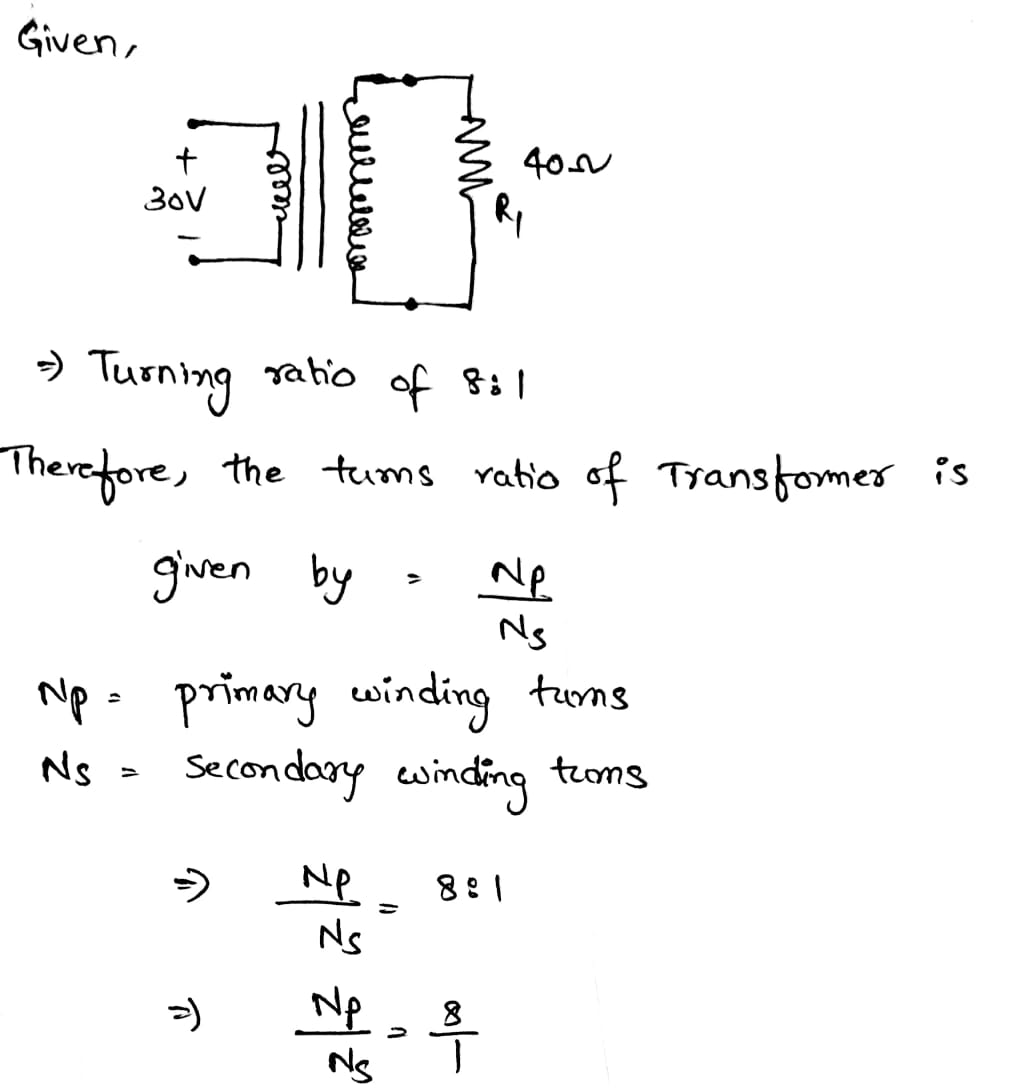 Given,
+
30V
-
40Ω
R1
⇒ Turning ratio of 8:1
Therefore, the turns ratio of Transformer is
given by = Np/Ns
Np = primary winding turns
Ns = Secondary winding turns
⇒ Np/Ns = 8:1
⇒ Np/Ns = 8/1